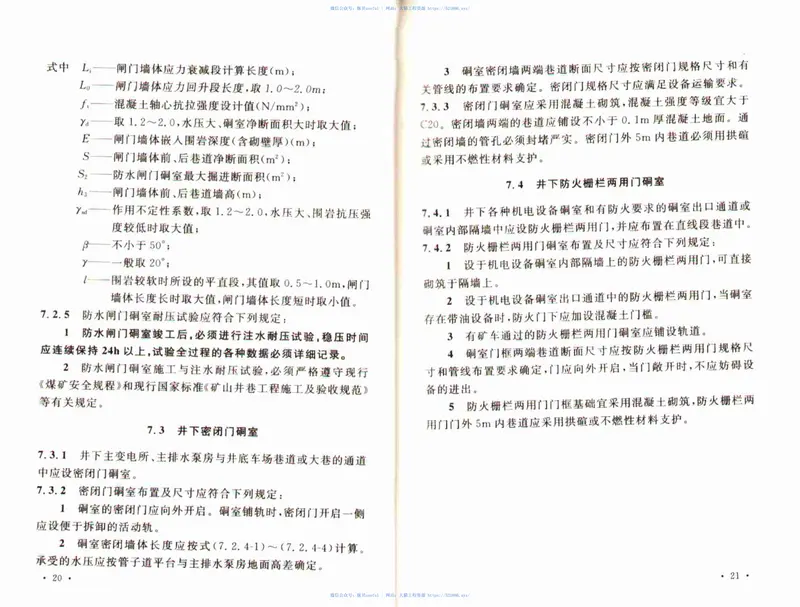 式中 L₁——闸门墙体应力衰减段计算长度(m);
L₀——闸门墙体应力回升段长度,取 1.0~2.0m;
fₜ——混凝土轴心抗拉强度设计值(N/mm²);
——取 1.2~2.0,水压大、硐室净断面积大时取大值;
E——闸门墙体嵌入围岩深度(含砌壁厚)(m);
S——闸门墙体前、后巷道净断面积(m²);
S₂——防水闸门硐室最大掘进断面积(m²);
h₃——闸门墙体前、后巷道墙高(m);
——作用不定性系数,取 1.2~2.0,水压大、围岩抗压强
度较低时取大值;
β——不小于 50°;
γ——一般取 20°;
l——围岩较软时所设的平直段,其值取 0.5~1.0m,闸门
墙体长度长时取大值,闸门墙体长度短时取小值。
7.2.5 防水闸门硐室耐压试验应符合下列规定:
1 防水闸门硐室竣工后,必须进行注水耐压试验,稳压时间
应连续保持 24h 以上,试验全过程的各种数据必须详细记录。
2 防水闸门硐室施工与注水耐压试验,必须严格遵守现行
《煤矿安全规程》和现行国家标准《矿山井巷工程施工及验收规范》
等有关规定。
7.3 井下密闭门硐室
7.3.1 井下主变电所、主排水泵房与井底车场巷道或大巷的通道
中应设密闭门硐室。
7.3.2 密闭门硐室布置及尺寸应符合下列规定:
1 硐室的密闭门应向外开启。硐室铺轨时,密闭门开启一侧
应设便于拆卸的活动轨。
2 硐室密闭墙体长度应按式(7.2.4-1)~(7.2.4-4)计算。
承受的水压应按管子道平台与主排水泵房地面高差确定。
· 20 ·
3 硐室密闭墙两端巷道断面尺寸应按密闭门规格尺寸和有
关管线的布置要求确定。密闭门规格尺寸应满足设备运输要求。
7.3.3 密闭门硐室应采用混凝土砌筑,混凝土强度等级宜大于
C20。密闭墙两端的巷道应铺设不小于 0.1m 厚混凝土地面。通
过密闭墙的管孔必须封堵严实。密闭门外 5m 内巷道必须用拱碹
或采用不燃性材料支护。
7.4 井下防火栅栏两用门硐室
7.4.1 井下各种机电设备硐室和有防火要求的硐室出口通道或
硐室内部隔墙中应设防火栅栏两用门,并应布置在直线段巷道中。
7.4.2 防火栅栏两用门硐室布置及尺寸应符合下列规定:
1 设于机电设备硐室内部隔墙上的防火栅栏两用门,可直接
砌筑于隔墙上。
2 设于机电设备硐室出口通道中的防火栅栏两用门,当硐室
存在带油设备时,防火门下应加设混凝土门槛。
3 有矿车通过的防火栅栏两用门硐室应铺设轨道。
4 硐室门框两端巷道断面尺寸应按防火栅栏两用门规格尺
寸和管线布置要求确定,门应向外开启,当门敞开时,不应妨碍设
备的进出。
5 防火栅栏两用门门框基础宜采用混凝土砌筑,防火栅栏两
用门门外 5m 内巷道应采用拱碹或不燃性材料支护。
· 21 ·